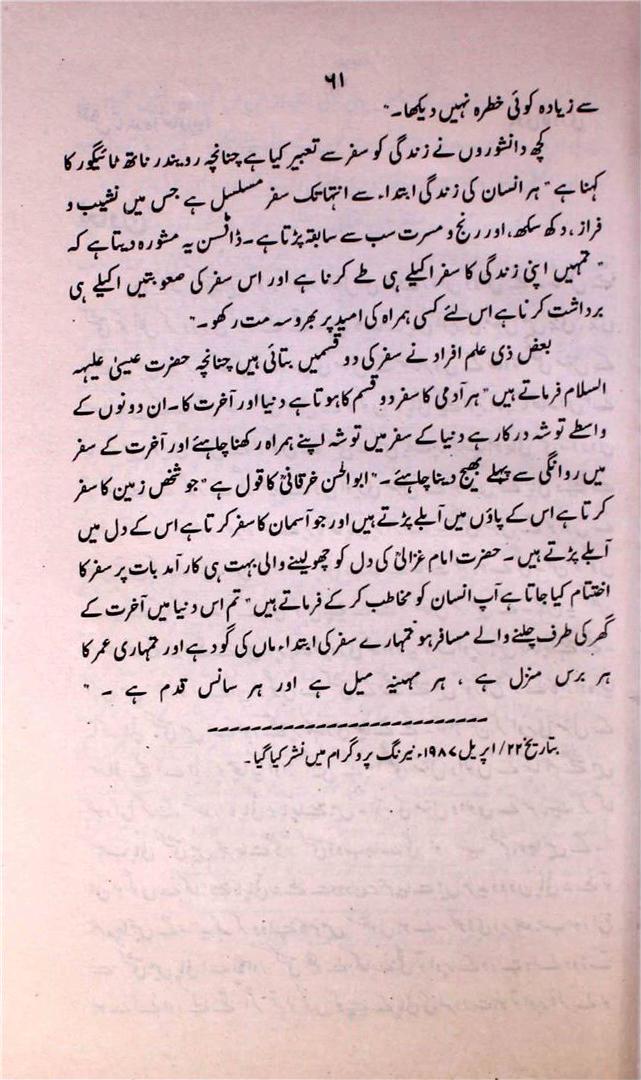 ۶۱
سے زیادہ کوئی خطرہ نہیں دیکھا۔"
کچھ دانشوروں نے زندگی کو سفر سے تعبیر کیا ہے چنانچہ رویندر ناتھ ٹائیگور کا
کہنا ہے "ہر انسان کی زندگی ابتداء سے انتہا تک سفر مسلسل ہے جس میں نشیب و
فراز، دکھ سکھ، اور رنج و مسرت سب سے سابقہ پڑتا ہے۔ ڈافسن یہ مشورہ دیتا ہے کہ
"تمہیں اپنی زندگی کا سفر اکیلے ہی طے کرنا ہے اور اس سفر کی صعوبتیں اکیلے ہی
برداشت کرنا ہے اس لئے کسی ہمراہ کی امید پر بھروسہ مت رکھو۔"
بعض ذی علم افراد نے سفر کی دو قسمیں بتائی ہیں چنانچہ حضرت عیسیٰ علیہ
السلام فرماتے ہیں "ہر آدمی کا سفر دو قسم کا ہوتا ہے دنیا اور آخرت کا۔ ان دونوں کے
واسطے توشہ درکار ہے دنیا کے سفر میں توشہ اپنے ہمراہ رکھنا چاہئے اور آخرت کے سفر
میں روانگی سے پہلے بھیج دینا چاہئے۔" ابوالحسن خرقانیؒ کا قول ہے "جو شخص زمین کا سفر
کرتا ہے اس کے پاؤں میں آبلے پڑتے ہیں اور جو آسمان کا سفر کرتا ہے اس کے دل میں
آبلے پڑتے ہیں۔ حضرت امام غزالیؒ کی دل کو چھو لینے والی بہت ہی کار آمد بات پر سفر کا
اختتام کیا جاتا ہے آپ انسان کو مخاطب کر کے فرماتے ہیں "تم اس دنیا میں آخرت کے
گھر کی طرف چلنے والے مسافر ہو تمہارے سفر کی ابتداء ماں کی گود ہے اور تمہاری عمر کا
ہر برس منزل ہے، ہر مہینہ میل ہے اور ہر سانس قدم ہے۔"
بتاریخ ۲۲/ اپریل ۱۹۸۷ء نیرنگ پروگرام میں نشر کیا گیا۔